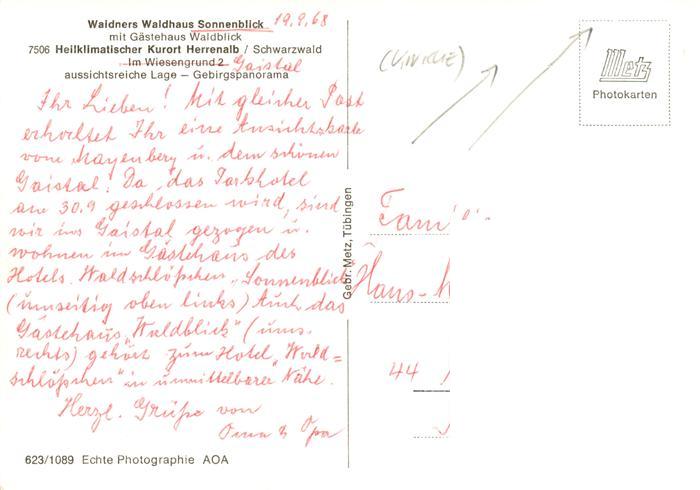 Waidners Waldhaus Sonnenblick 19.9.68
mit Gästehaus Waldblick
7506 Heilklimatischer Kurort Herrenalb / Schwarzwald
Im Wiesengrund 2 Gaistal
aussichtsreiche Lage – Gebirgspanorama
Ihr Lieben! Mit gleicher Post
erhaltet Ihr eine Ansichtskarte
vom Mayenberg u. dem schönen
Gaistal! Da das Parkhotel
am 30.9 geschlossen wird, sind
wir ins Gaistal gezogen u.
wohnen im Gästehaus des
Hotels Waldschlößchen „Sonnenblick
(umseitig oben links) Auch das
Gästehaus „Waldblick" (ums.
rechts) gehört zum Hotel „Wald=
schlößchen" in unmittelbarer Nähe.
Herzl. Grüße von
Oma & Opa
623/1089 Echte Photographie AOA
Gebr. Metz, Tübingen
Metz
Photokarten
Fam
Hans-
44